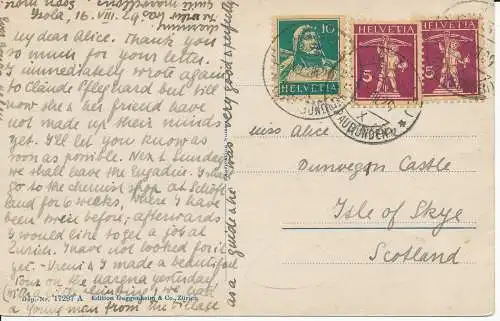 Isola, 16. VIII. 29.
My dear Alice. Thank you
so much for your letter.
I immediately wrote again
to Claude Pfleghard but till
now she & her friend have
not made up their minds
yet. I'll let you know as
soon as possible. Next Sunday
we shall leave the Engadin. I shall
go to the chemist shop at Schöft-
land for 6 weeks, where I have
been before, afterwards
I would like to get a job at
Zürich. I have not looked for it
yet. Vreni & I made a beautiful
tour on the Margna yesterday
climbing) we had
a young man from the village
as a guide & he was very good & perfectly
HELVETIA
10
HELVETIA
5
HELVETIA
5
Miss Alice
Dunvegan Castle
Isle of Skye
Scotland
Dep.-Nr. 17297 A Edition Guggenheim & Co., Zürich